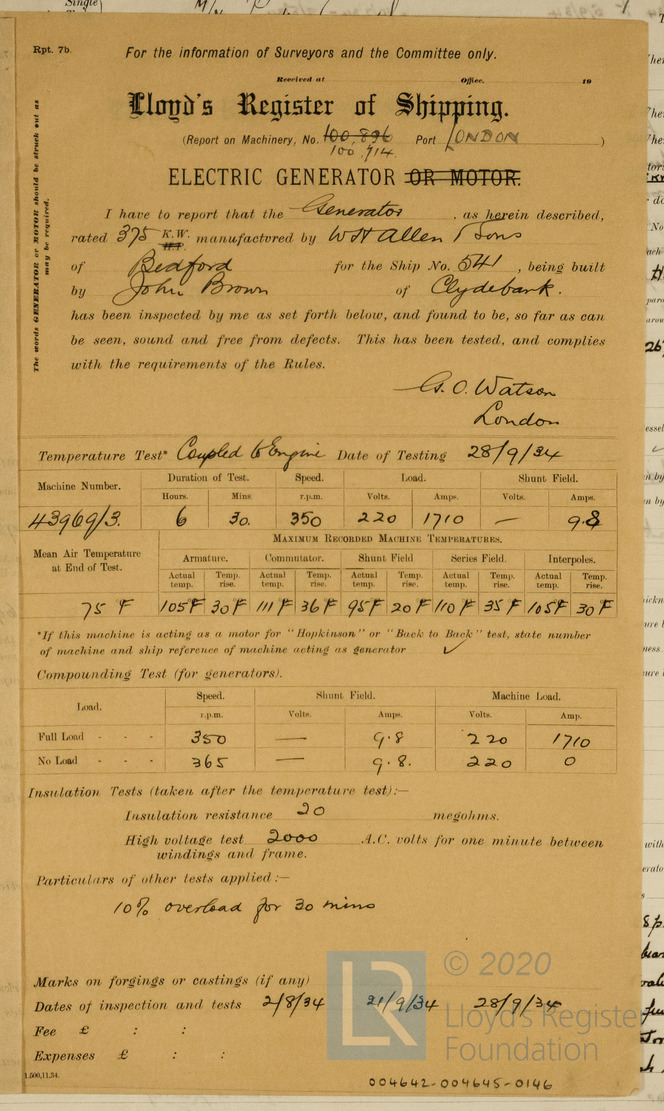 Rpt. 7b.
For the information of Surveyors and the Committee only.
Received at Office. 19
Lloyd's Register of Shipping.
(Report on Machinery, No. 100,896 Port LONDON )
100,914
ELECTRIC GENERATOR OR MOTOR.
The words GENERATOR or MOTOR should be struck out as
may be required.
I have to report that the Generator , as herein described,
rated 375 K.W. manufactured by WH Allen & Sons
of Bedford for the Ship No. 541 , being built
by John Brown of Clydebank.
has been inspected by me as set forth below, and found to be, so far as can
be seen, sound and free from defects. This has been tested, and complies
with the requirements of the Rules.
G. O. Watson
London
Temperature Test* Coupled to Engine Date of Testing 28/9/34
Machine Number. Duration of Test. Speed. Load. Shunt Field.
Hours. Mins. r.p.m. Volts. Amps. Volts. Amps.
43969/3. 6 30. 350 220 1710 — 9.8
Mean Air Temperature at End of Test. MAXIMUM RECORDED MACHINE TEMPERATURES.
Armature. Commutator. Shunt Field Series Field Interpoles.
Actual temp. Temp. rise. Actual temp. Temp. rise. Actual temp. Temp. rise. Actual temp. Temp. rise. Actual temp. Temp. rise.
75 °F 105°F 30°F 111°F 36°F 95°F 20°F 110°F 35°F 105°F 30°F
*If this machine is acting as a motor for "Hopkinson" or "Back to Back" test, state number
of machine and ship reference of machine acting as generator ✓
Compounding Test (for generators).
Load. Speed. Shunt Field. Machine Load.
r.p.m. Volts. Amps. Volts. Amp.
Full Load - - - 350 — 9.8 220 1710
No Load - - - 365 — 9.8. 220 0
Insulation Tests (taken after the temperature test):—
Insulation resistance 20 megohms.
High voltage test 2000 A.C. volts for one minute between
windings and frame.
Particulars of other tests applied:—
10% overload for 30 mins
Marks on forgings or castings (if any)
Dates of inspection and tests 2/8/34 21/9/34 28/9/34
Fee £ : :
Expenses £ : :
1,500,11.34.
LR
© 2020
Lloyd's Register
Foundation
004642-004645-0146